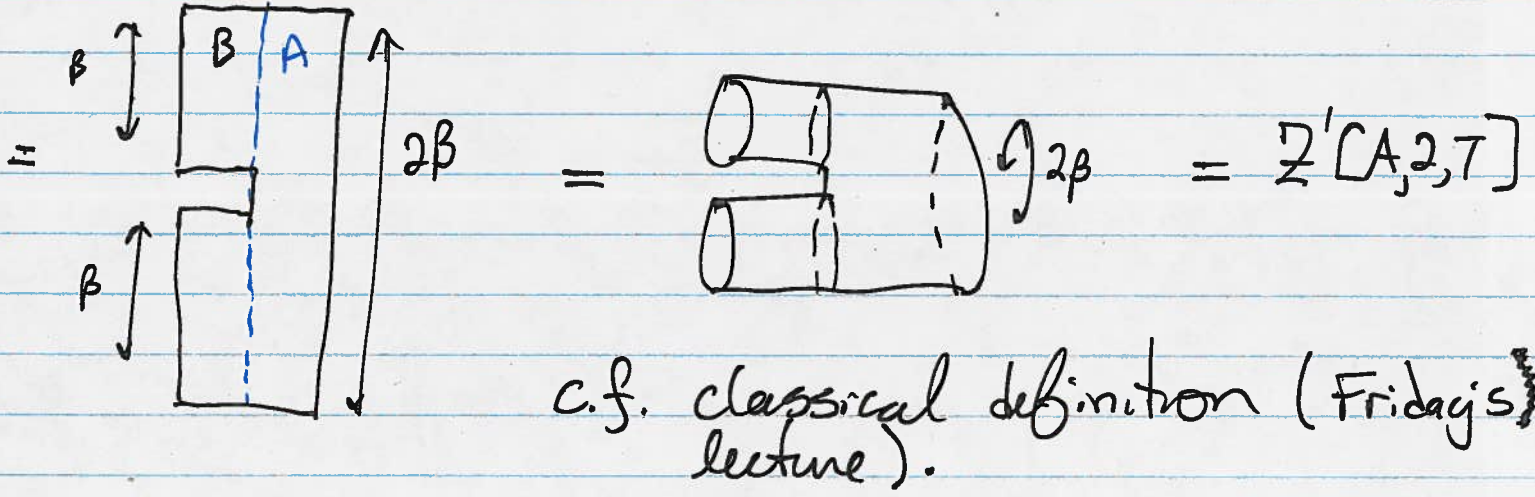 β
B A
2β
β
=
=
2β
= Z'[A,2,T]
c.f. classical definition (Friday's
lecture).